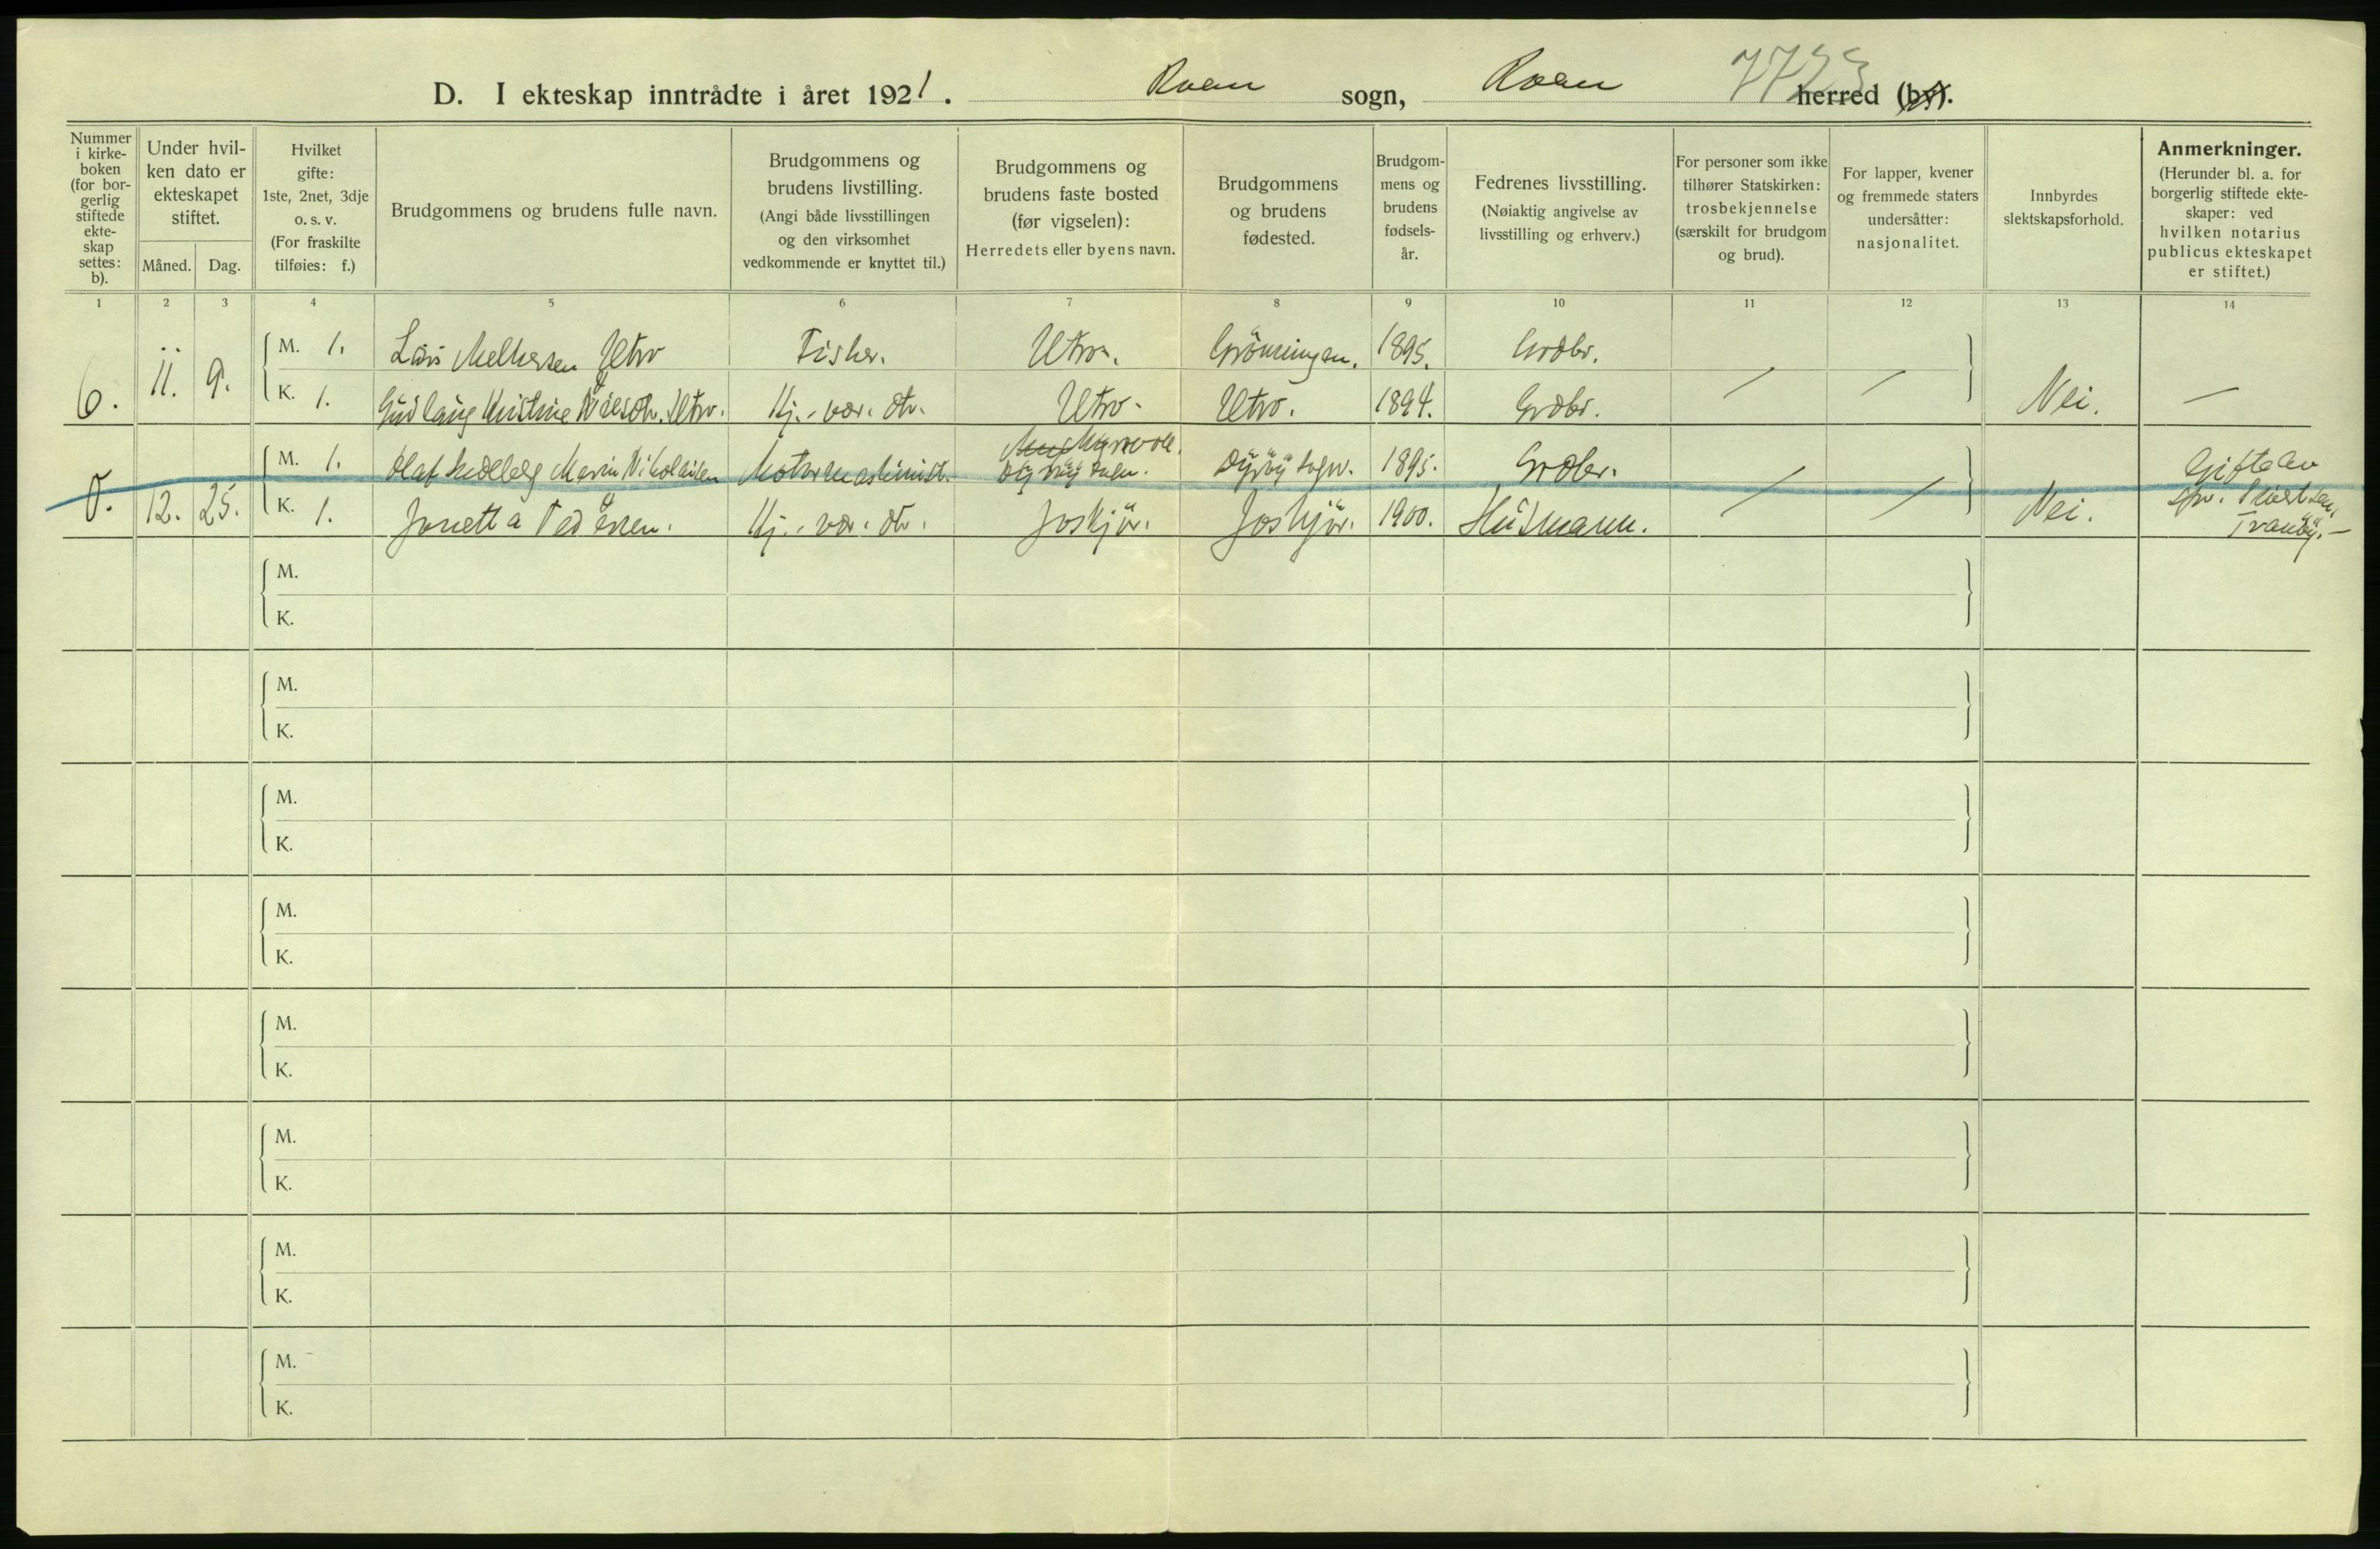 D. I ekteskap inntrådte i året 1921. Roan sogn, Roan herred (by). 7723
Nummer i kirke-boken (for bor-gerlig stiftede ekte-skap settes: b).
Under hvil-ken dato er ekteskapet stiftet.
Måned. Dag.
Hvilket gifte: 1ste, 2net, 3dje o. s. v. (For fraskilte tilføies: f.)
Brudgommens og brudens fulle navn.
Brudgommens og brudens livstilling. (Angi både livsstillingen og den virksomhet vedkommende er knyttet til.)
Brudgommens og brudens faste bosted (før vigselen): Herredets eller byens navn.
Brudgommens og brudens fødested.
Brudgom-mens og brudens fødsels-år.
Fedrenes livsstilling. (Nøiaktig angivelse av livsstilling og erhverv.)
For personer som ikke tilhører Statskirken: trosbekjennelse (særskilt for brudgom og brud).
For lapper, kvener og fremmede staters undersåtter: nasjonalitet.
Innbyrdes slektskapsforhold.
Anmerkninger. (Herunder bl. a. for borgerlig stiftede ekte-skaper: ved hvilken notarius publicus ekteskapet er stiftet.)
1 2 3 4 5 6 7 8 9 10 11 12 13 14
6. 11. 9. M. 1. Lars Melkersen Utro Fisker. Utro. Grönningen. 1895. Grdbr.
K. 1. Gudlaug Kristine Utro. Kj.-vær. dtr. Utro. Utro. 1894. Grdbr. — — Nei. —
M. 1. Olaf Hedleg Marin Nikolaisen Motormaskinist. Dyröy sogn. Dyröy sogn. 1895. Grdbr. Gifte av
0. 12. 25. K. 1. Jonetta Pedersen. Kj.-vær. dtr. Joskjör. Joskjör. 1900. Husmann. — — Nei. spr.
Tranöy.—
M.
K.
M.
K.
M.
K.
M.
K.
M.
K.
M.
K.
M.
K.
M.
K.